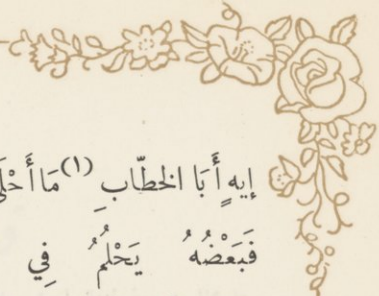 إيهٍ أَبَا الخطّابِ (١) مَا أَحْلَى
فَبَعْضُهُ يَحْلُمُ فِي